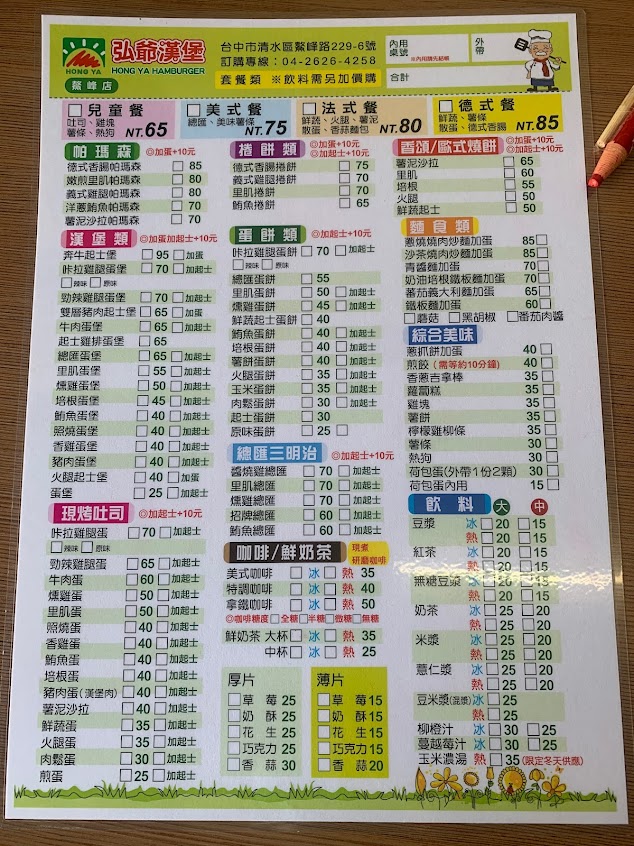 弘爺漢堡
HONG YA
HONG YA HAMBURGER
鰲峰店
台中市清水區鰲峰路229-6號
訂購專線：04-2626-4258
套餐類 ※飲料需另加價購
內用
桌號
※內用請先結帳
外帶
合計
兒童餐
吐司、雞塊
薯條、熱狗
NT.65
美式餐
總匯、美味薯條
NT.75
法式餐
鮮蔬、火腿、薯泥
散蛋、香蒜麵包
NT.80
德式餐
鮮蔬、薯條
散蛋、德式香腸
NT.85
帕瑪森 ◎加蛋+10元
德式香腸帕瑪森 85
嫩煎里肌帕瑪森 80
義式雞腿帕瑪森 80
洋蔥鮪魚帕瑪森 70
薯泥沙拉帕瑪森 70
漢堡類 ◎加蛋加起士+10元
奔牛起士堡 95 加蛋
咔拉雞腿蛋堡 70 加起士
辣味 原味
勁辣雞腿蛋堡 70 加起士
雙層豬肉起士堡 65 加蛋
牛肉蛋堡 65 加起士
起士雞排蛋堡 65
總匯蛋堡 65 加起士
里肌蛋堡 55 加起士
燻雞蛋堡 50 加起士
培根蛋堡 45 加起士
鮪魚蛋堡 40 加起士
照燒蛋堡 40 加起士
香雞蛋堡 40 加起士
豬肉蛋堡 40 加起士
火腿起士堡 40 加蛋
蛋堡 25 加起士
現烤吐司 ◎加起士+10元
咔拉雞腿蛋 70 加起士
辣味 原味
勁辣雞腿蛋 65 加起士
牛肉蛋 60 加起士
燻雞蛋 50 加起士
里肌蛋 50 加起士
照燒蛋 40 加起士
香雞蛋 40 加起士
鮪魚蛋 40 加起士
培根蛋 40 加起士
豬肉蛋(漢堡肉) 40 加起士
薯泥沙拉 40 加起士
鮮蔬蛋 35 加起士
火腿蛋 35 加起士
肉鬆蛋 30 加起士
煎蛋 25 加起士
捲餅類 ◎加蛋+10元
◎加起士+10元
德式香腸捲餅 75
義式雞腿捲餅 70
里肌捲餅 70
鮪魚捲餅 65
蛋餅類 ◎加起士+10元
咔拉雞腿蛋餅 70 加起士
辣味 原味
總匯蛋餅 55
里肌蛋餅 50 加起士
燻雞蛋餅 45 加起士
鮮蔬起士蛋餅 40
鮪魚蛋餅 40 加起士
培根蛋餅 40 加起士
薯餅蛋餅 40 加起士
火腿蛋餅 35 加起士
玉米蛋餅 35 加起士
肉鬆蛋餅 30 加起士
起士蛋餅 30
原味蛋餅 25
總匯三明治 ◎加起士+10元
醬燒雞總匯 70 加起士
里肌總匯 70 加起士
燻雞總匯 70 加起士
招牌總匯 60 加起士
鮪魚總匯 60 加起士
咖啡/鮮奶茶 現煮
研磨咖啡
美式咖啡 冰 熱 35
特調咖啡 冰 熱 40
拿鐵咖啡 冰 熱 50
◎咖啡糖度 全糖 半糖 微糖 無糖
鮮奶茶 大杯 冰 熱 35
中杯 冰 熱 25
厚片
草莓 25
奶酥 25
花生 25
巧克力 25
香蒜 30
薄片
草莓 15
奶酥 15
花生 15
巧克力 15
香蒜 20
香頌/歐式燒餅 ◎加蛋+10元
◎加起士+10元
薯泥沙拉 65
里肌 60
培根 55
火腿 50
鮮蔬起士 50
麵食類
蔥燒燒肉炒麵加蛋 85
沙茶燒肉炒麵加蛋 85
青醬麵加蛋 70
奶油培根鐵板麵加蛋 70
蕃茄義大利麵加蛋 65
鐵板麵加蛋 60
蘑菇 黑胡椒 番茄肉醬
綜合美味
蔥抓餅加蛋 40
煎餃 (需等約10分鐘) 40
香蔥吉拿棒 35
蘿蔔糕 35
雞塊 35
薯餅 35
檸檬雞柳條 35
薯條 30
熱狗 30
荷包蛋(外帶1份2顆) 30
荷包蛋內用 15
飲料 大 中
豆漿 冰 20 15
熱 20 15
紅茶 冰 20 15
熱 20 15
無糖豆漿 冰 20 15
熱 20 15
奶茶 冰 25 20
熱 25 20
米漿 冰 25 20
熱 25 20
薏仁漿 冰 25 20
熱 25 20
豆米漿(混漿) 冰 25
熱 25
柳橙汁 冰 30 25
蔓越莓汁 冰 30 25
玉米濃湯 熱 35 (限定冬天供應)